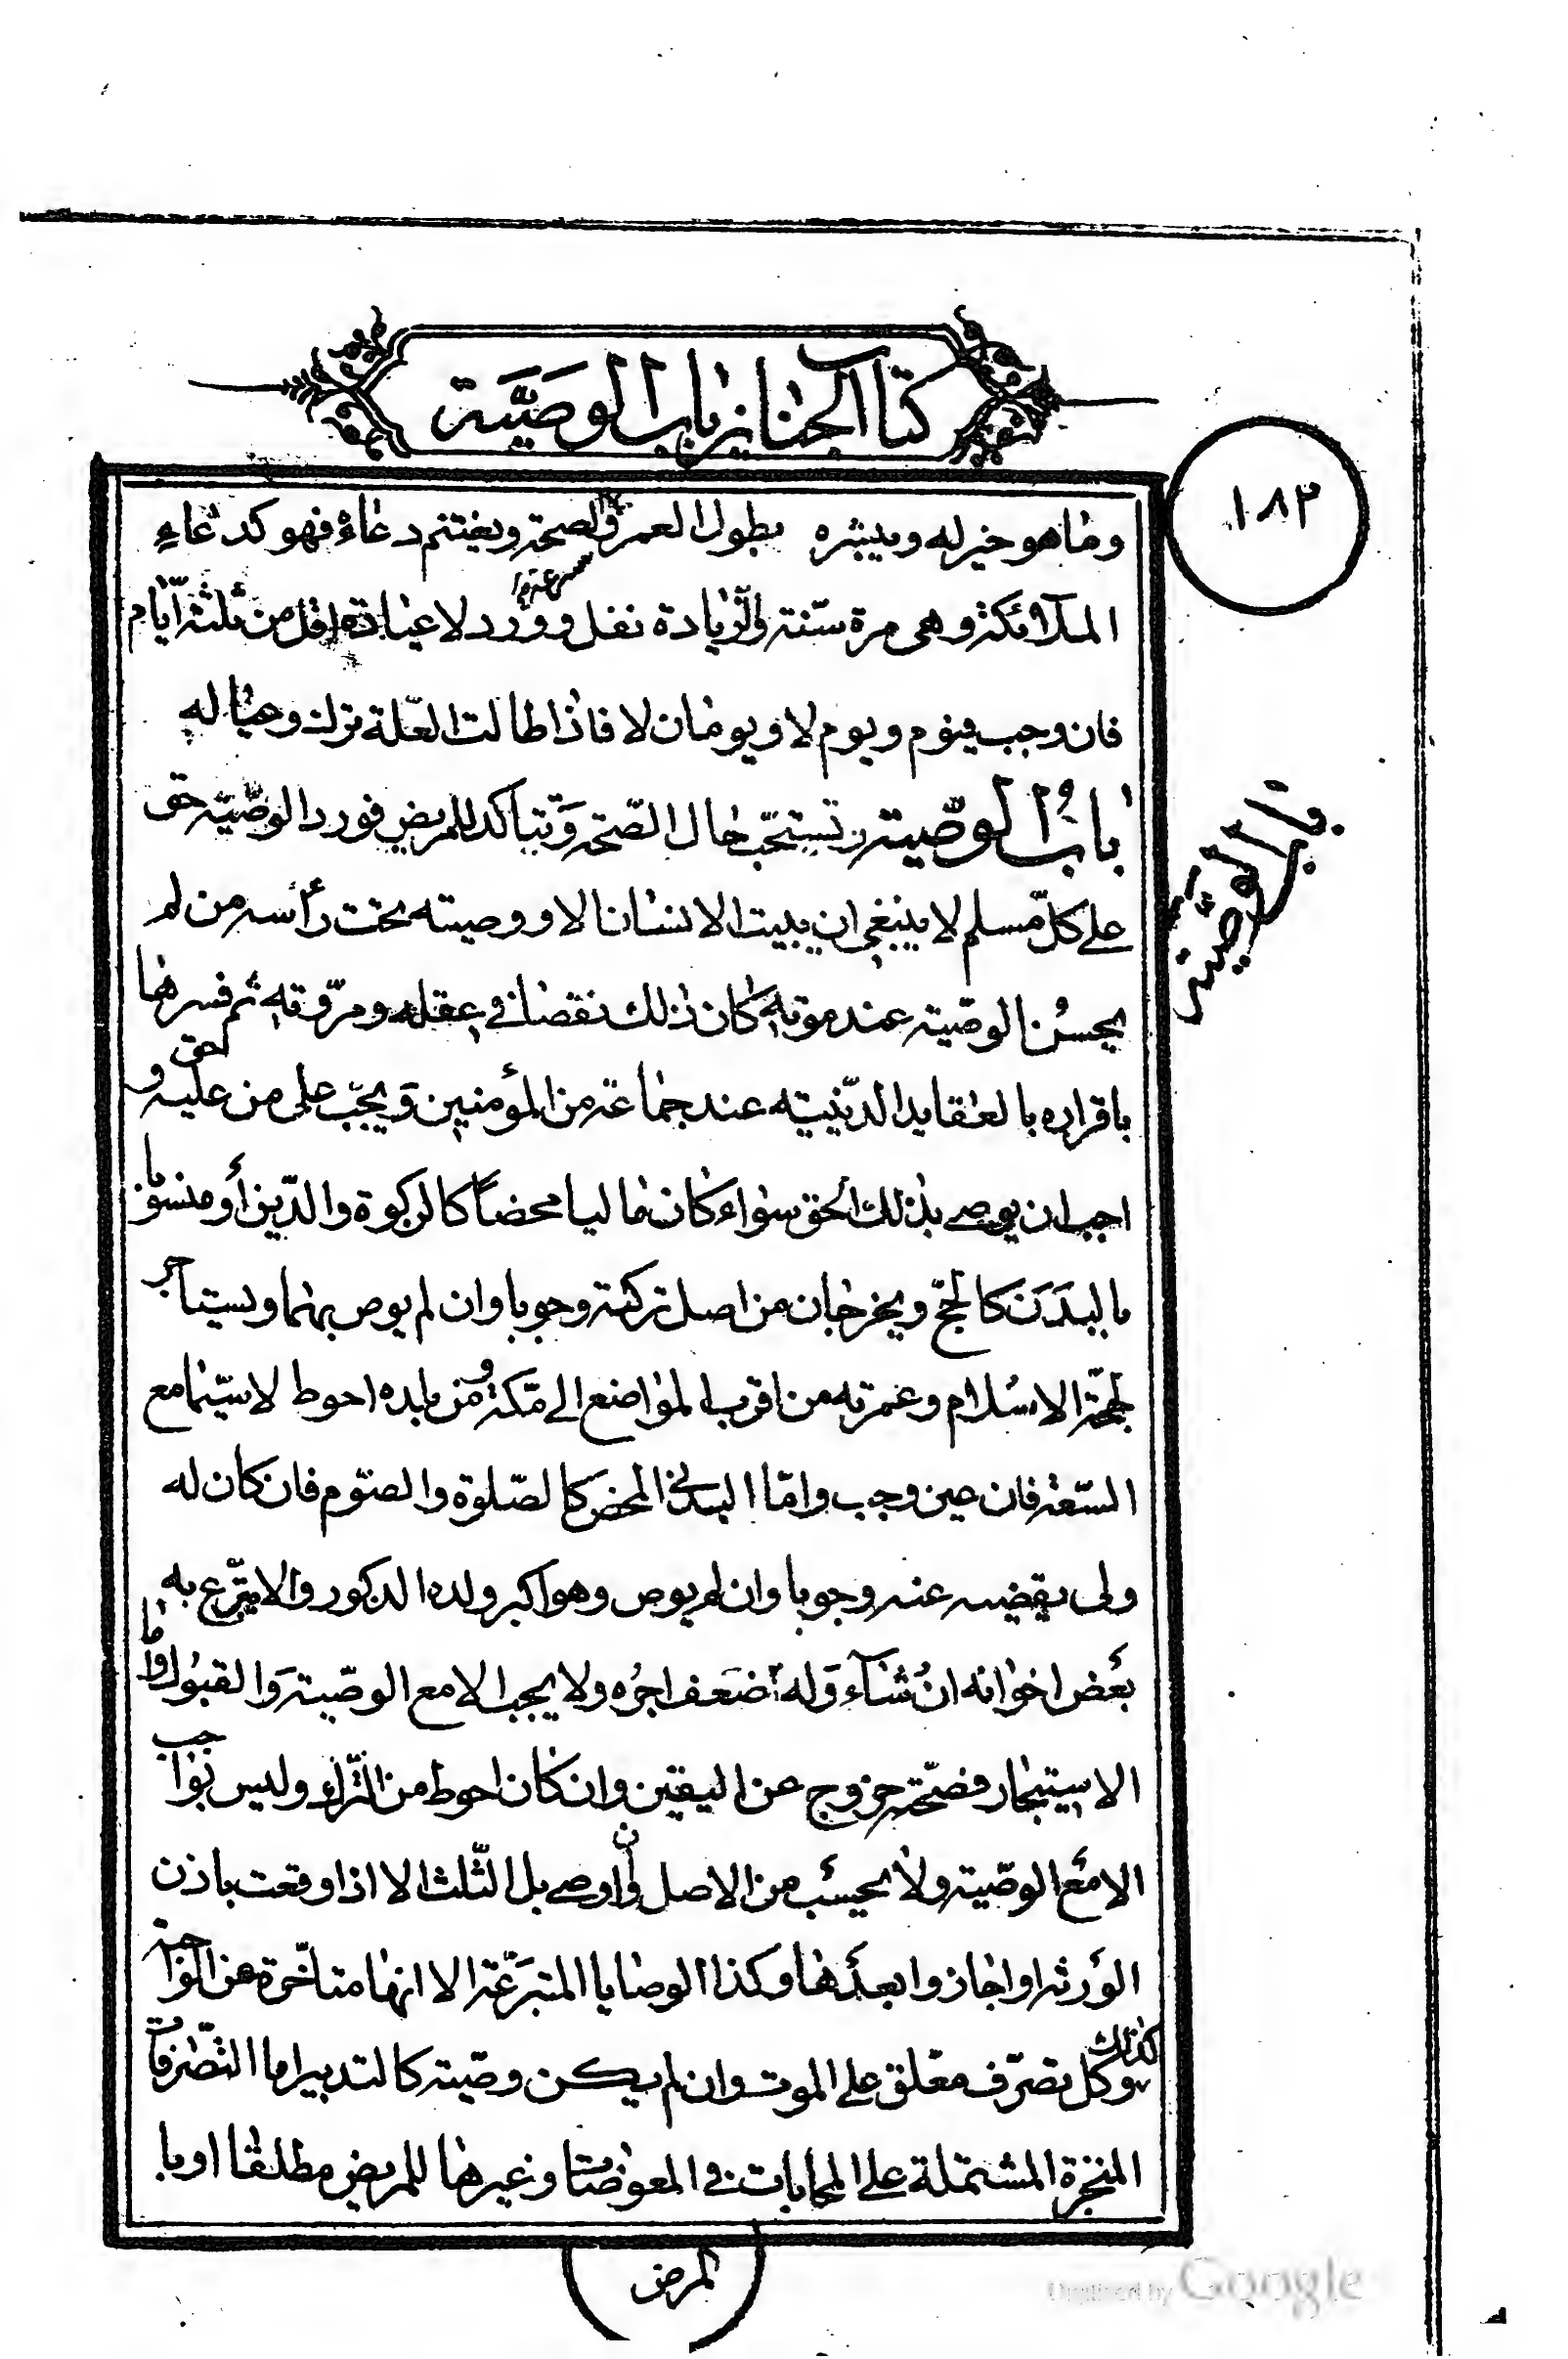 كتاب الجنائز باب الوصيّة
١٨٣
وما هو خير له ويبشره بطول العمر والصحة ويغتنم دعاءه فهو كدعاء
الملائكة وهي مرة سنّة والزّيادة نفل وورد لا عيادة اقل من ثلثة ايّام
فان وجب فيوم ويوم لا ويومان لا فاذا طالت العلّة ترك وعياله
باب الوصيّة تستحبّ حال الصّحة وتتاكد للمريض فورد الوصيّة حق
باب الوصيّة
على كلّ مسلم لا ينبغي ان يبيت الانسان الا ووصيته تحت رأسه من لم
يحسن الوصيّة عند موته كان ذلك نقصا في عقله ومروّته ثم فسرها
باقراره بالعقايد الدّينيّه عند جماعة من المؤمنين ويجب على من عليه حق و
اجب ان يوصي بذلك الحق سواء كان ماليا محضا كالزكوة والدّين أو منسوبا
بالبدن كالحجّ ويخرجان من اصل تركته وجوبا وان لم يوص بهما ويستاجر
لحجّة الاسلام وعمرته من اقرب المواضع الى مكّة ومن بلده احوط لا سيّما مع
السّعة فان عين وجب وامّا البدني المحض كالصّلوة والصّوم فان كان له
ولى يقضيه عنه وجوبا وان لم يوص وهو اكبر ولده الذكور والا يتبرّع به
بعض اخوانه ان شآء وله اضعف اجره ولا يجب الا مع الوصيّة والقبول واما
الاستيجار فصحّته خروج عن اليقين وان كان احوط من الترك وليس بواجب
الا مع الوصيّة ولا يحسب من الاصل وان اوصى بل الثّلث الا اذا وقعت باذن
الورثة او اجازوا بعدها وكذا الوصايا المتبرّعة الا انها متاخّرة عن الواجبة
وكذلك كل تصرّف معلّق على الموت وان لم يكن وصيّة كالتدبير اما التّصرّفات
المنجزة المشتملة على المحابات في المعوضات وغيرها للمريض مطلقا او با
المرض
Digitized by Google